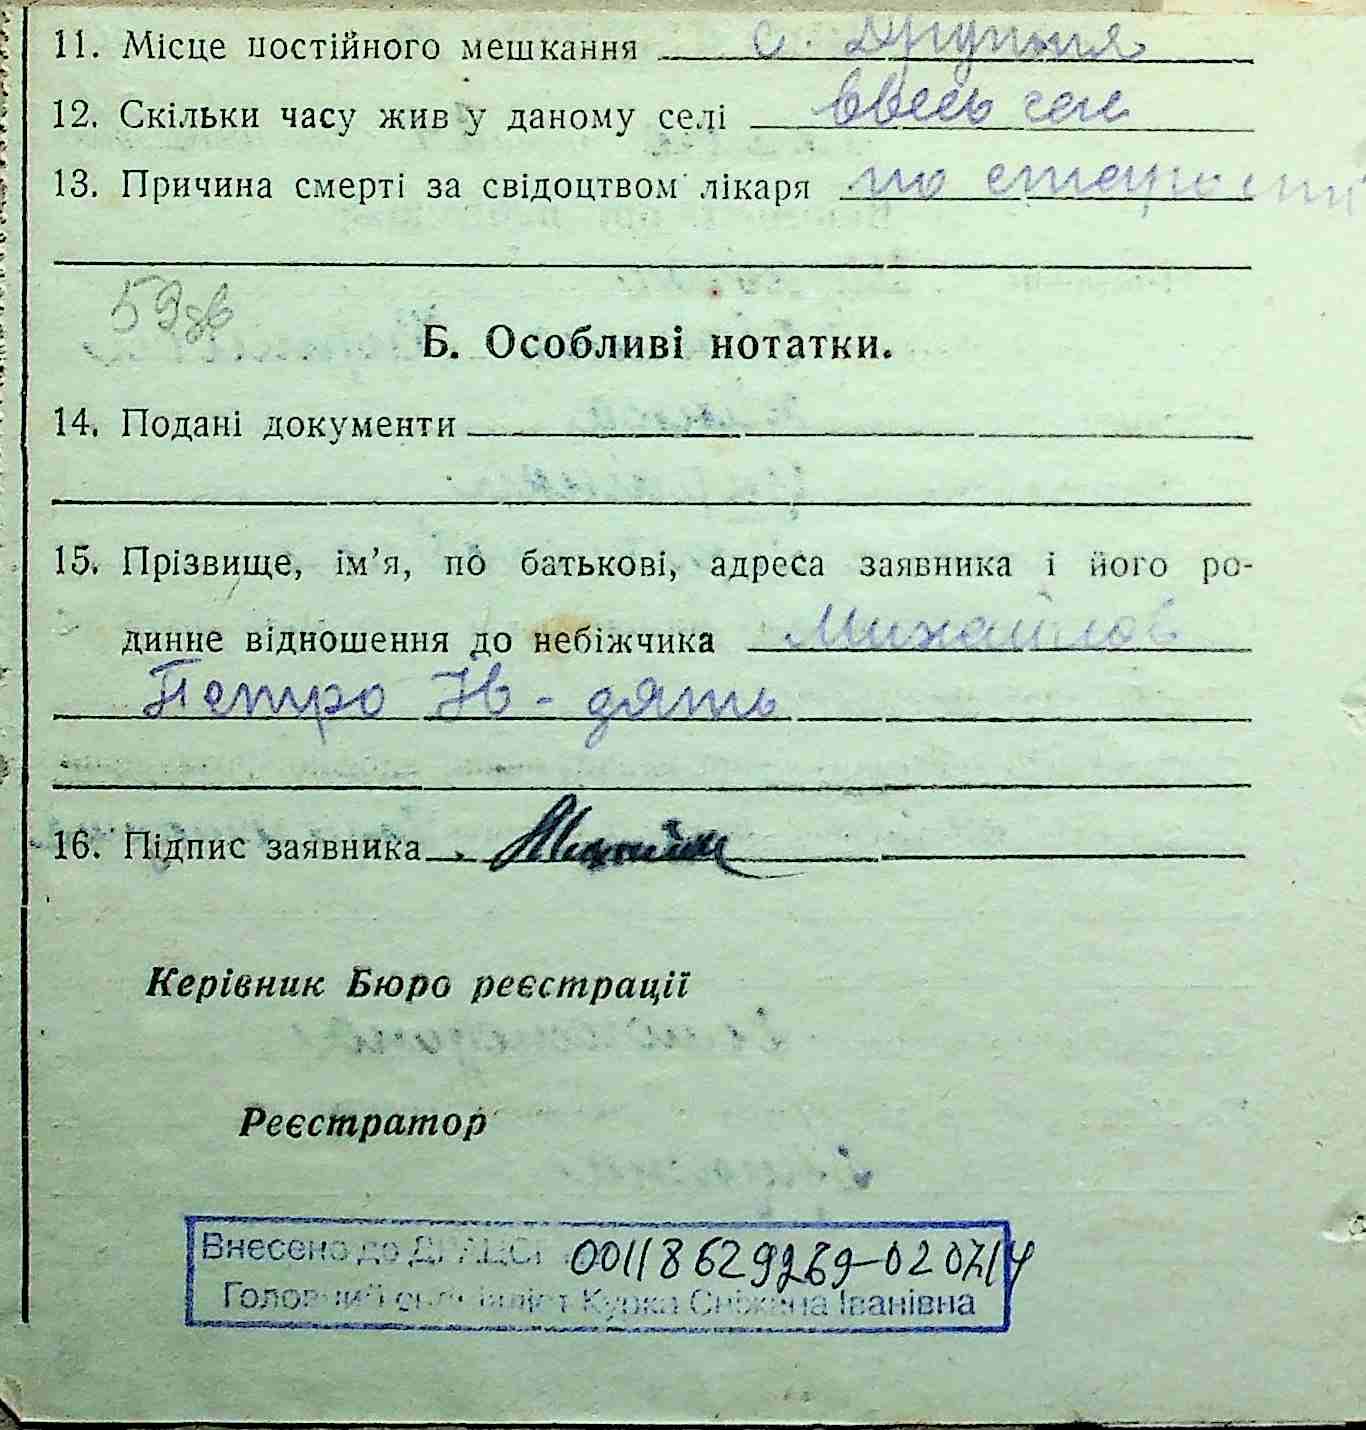 11. Місце постійного мешкання с.
12. Скільки часу жив у даному селі ввесь час
13. Причина смерті за свідоцтвом лікаря по старості
59зв
Б. Особливі нотатки.
14. Подані документи
15. Прізвище, ім'я, по батькові, адреса заявника і його ро-
динне відношення до небіжчика Михайлов
Петро Ів - дять
16. Підпис заявника
Керівник Бюро реєстрації
Реєстратор
Внесено до ДРАЦСГ 00118629269-020714
Головний спеціаліст Курка Сніжана Іванівна